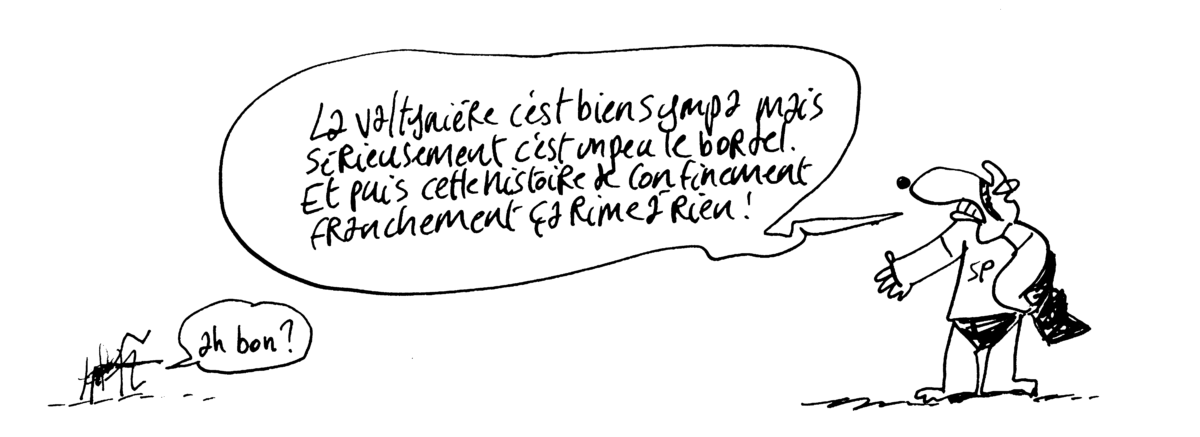 La Valtynière c'est bien sympa mais
sérieusement c'est un peu le bordel.
Et puis cette histoire de confinement
franchement ça rime à rien !
SP
ah bon ?